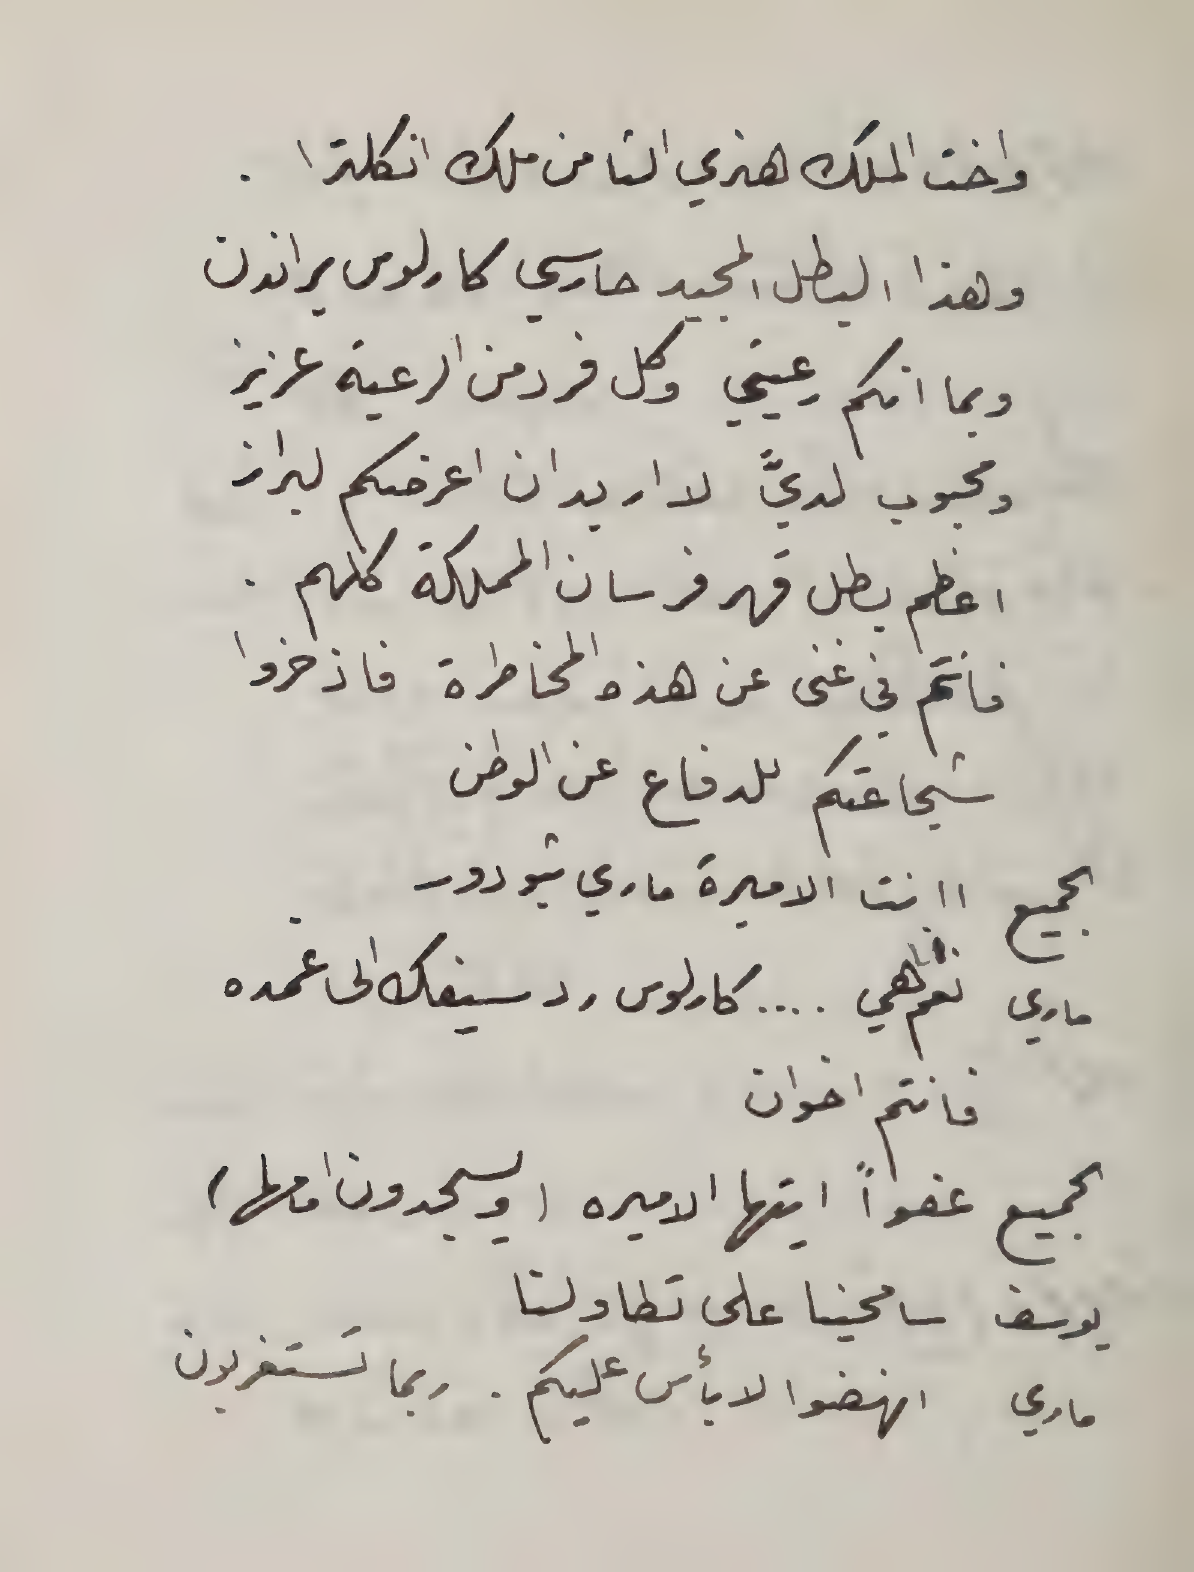 واخت الملك هنري الثامن ملك انكلترا .
وهذا البطل المجيد حارسي كارلوس براندن
وبما انكم رعيتي وكل فرد من الرعية عزيز
ومحبوب لديَّ لا اريد ان اعرضكم لبراز
اعظم بطل قهر فرسان المملكة كلهم .
فانتم في غنى عن هذه المخاطرة فاذخروا
شجاعتكم للدفاع عن الوطن
الجميع اانت الاميرة ماري تيودور
ماري نعم هي .... كارلوس رد سيفك الى غمده
فانتم اخوان
الجميع عفواً ايتها الاميره ( ويسجدون امامها )
يوسف سامحينا على تطاولنا
ماري انهضوا لا بأس عليكم . ربما تستغربون